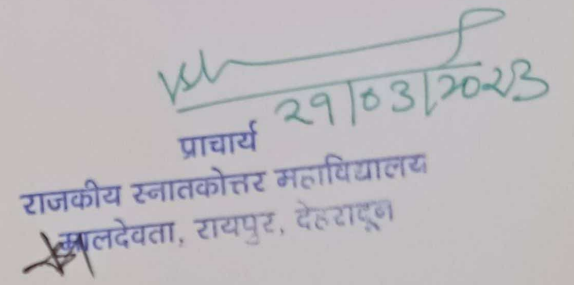 29/03/2023
प्राचार्य
राजकीय स्नातकोत्तर महाविद्यालय
मालदेवता, रायपुर, देहरादून